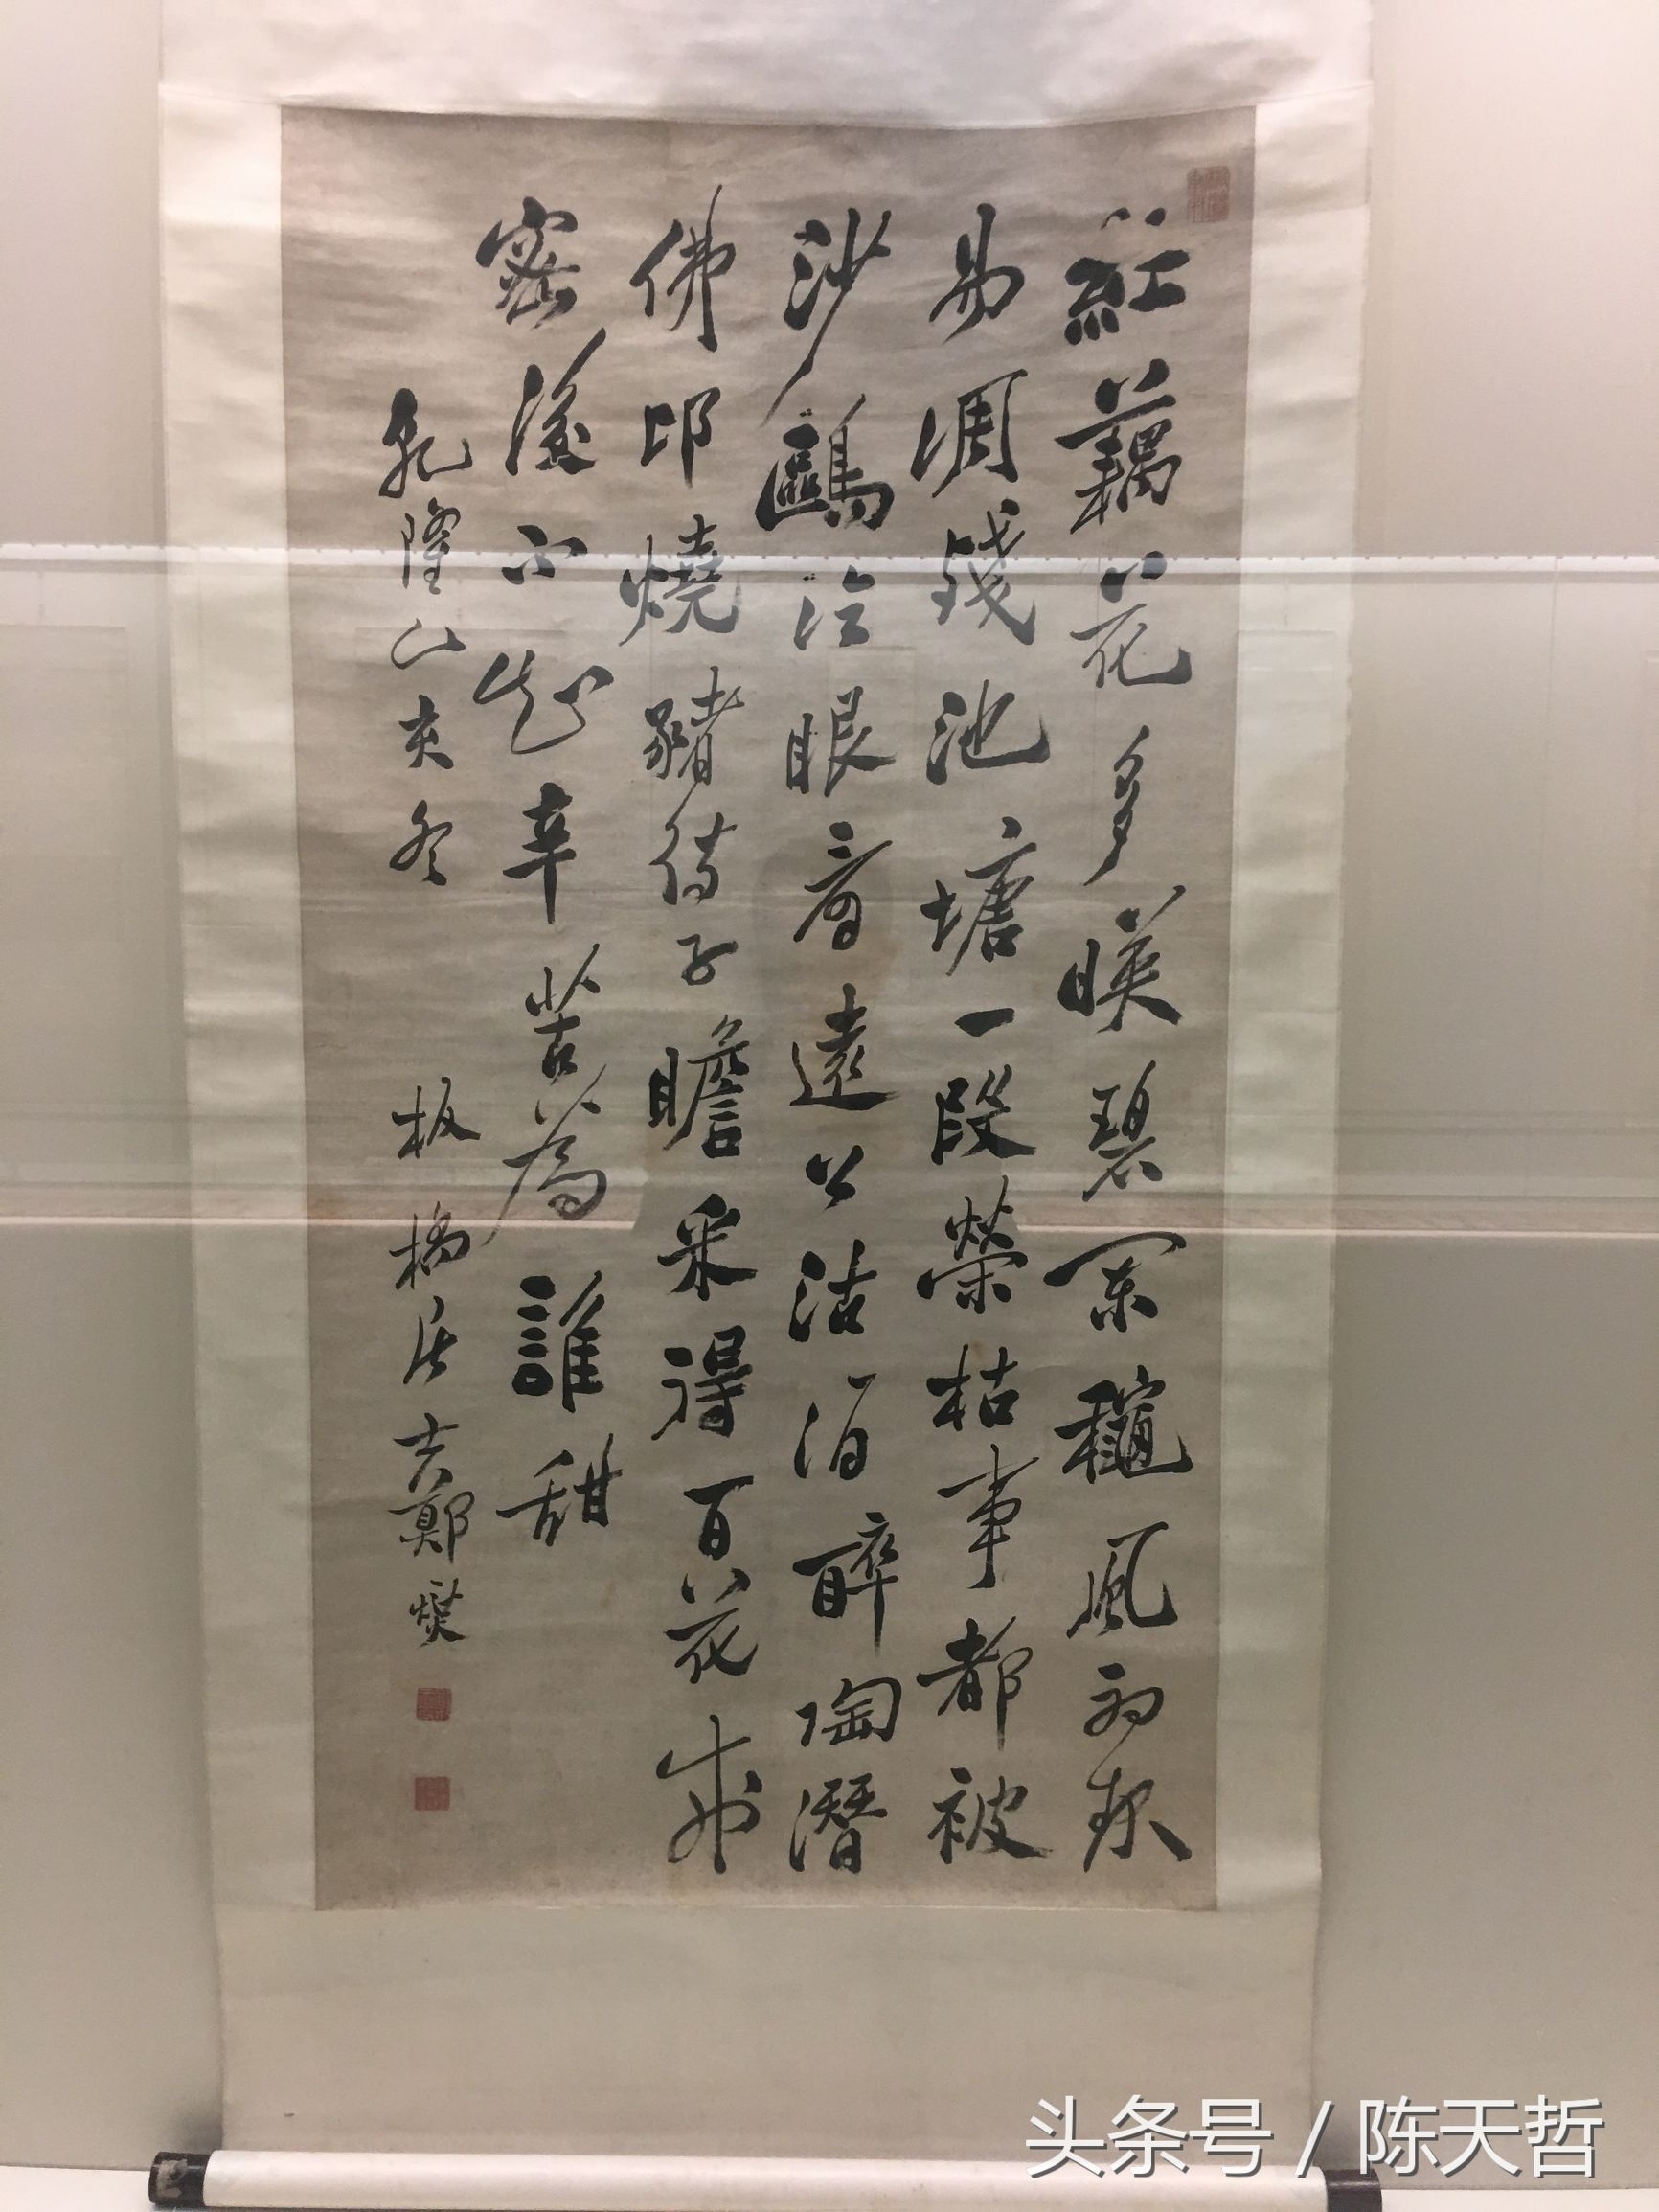 紅藕花多暎碧闌穐風初
易凋殘池塘一段榮枯事都被
沙鷗冷眼看遠公沽酒醉陶潛
佛印燒豬待子瞻采得百花成
蜜後不知辛苦為誰甜
乾隆乙亥冬 板橋居士鄭燮
头条号 / 陈天哲